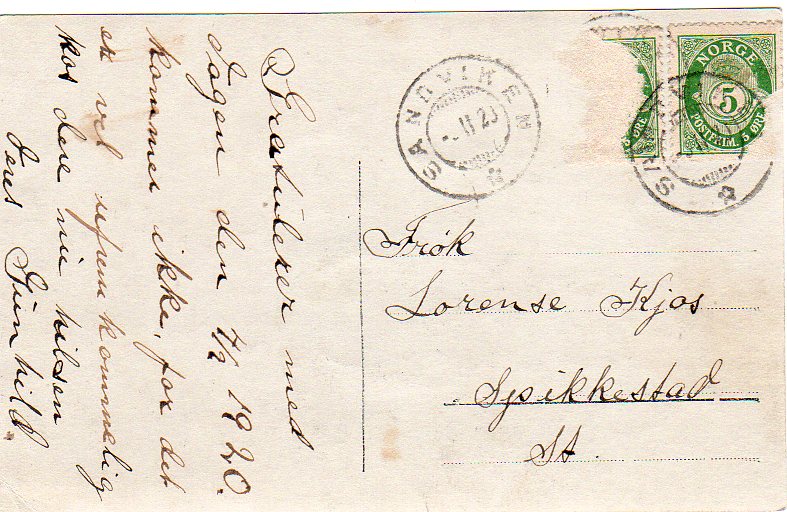 Gratulerer med
dagen den 4/2 1920.
kommer ikke, for det
er vel ufremkommelig
hos dere nu hilsen
Gunhild
SANDVIKEN
II 20
NORGE
5
POSTFRIM. 5 ØRE
5 ØRE
SANDVIKEN
Frøk
Lorense Kjos
Spikkestad
St.